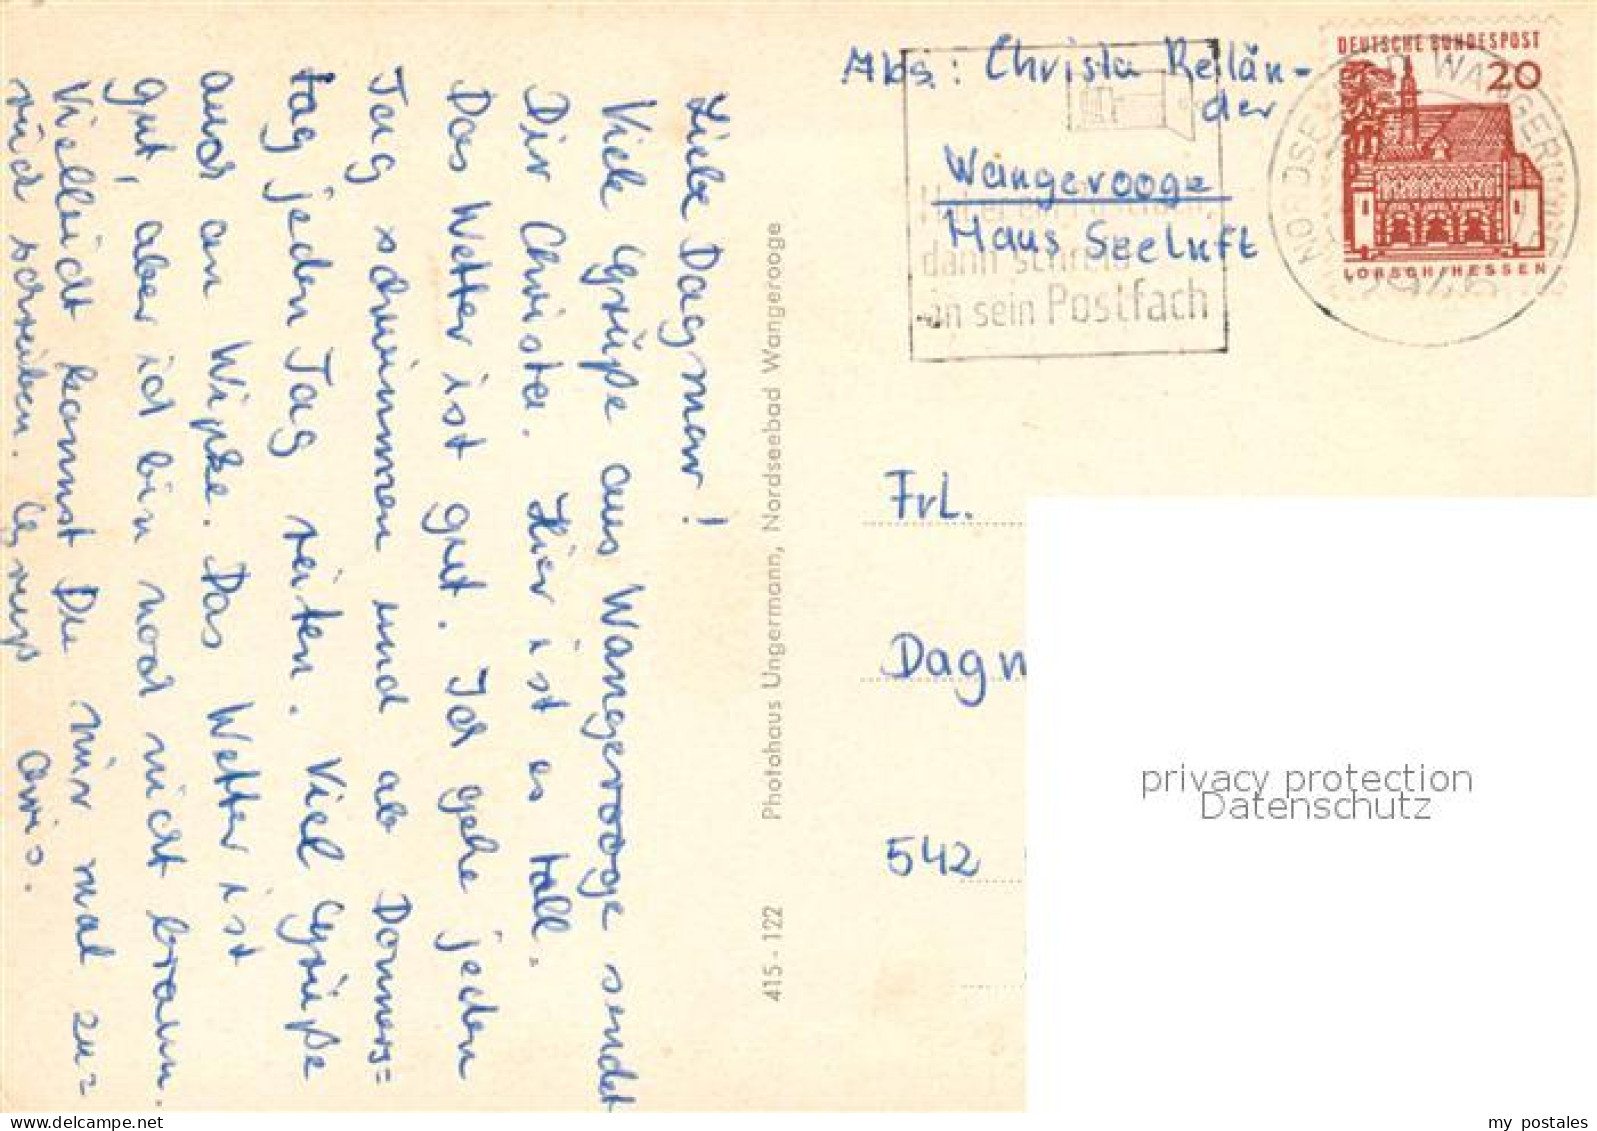 Liebe Dagmar!
Viele Grüße aus Wangerooge sendet
Dir Christa. Hier ist es toll.
Das Wetter ist gut. Ich gehe jeden
Tag schwimmen und ab Donners=
tag jeden Tag reiten. Viel Grüße
auch an Wipke. Das Wetter ist
gut, aber ich bin noch nicht braun.
Vielleicht kannst Du mir mal zu=
rück schreiben. Gruß Chris.
415 - 122 Photohaus Ungermann, Nordseebad Wangerooge
Abs.: Christa Rellän-
der
Wangerooge
Haus Seeluft
dann schreib
an sein Postfach
DEUTSCHE BUNDESPOST
20
LORSCH/HESSEN
NORDSEEBAD WANGEROOGE
2946
Frl.
Dagm
542
privacy protection
Datenschutz
my postales